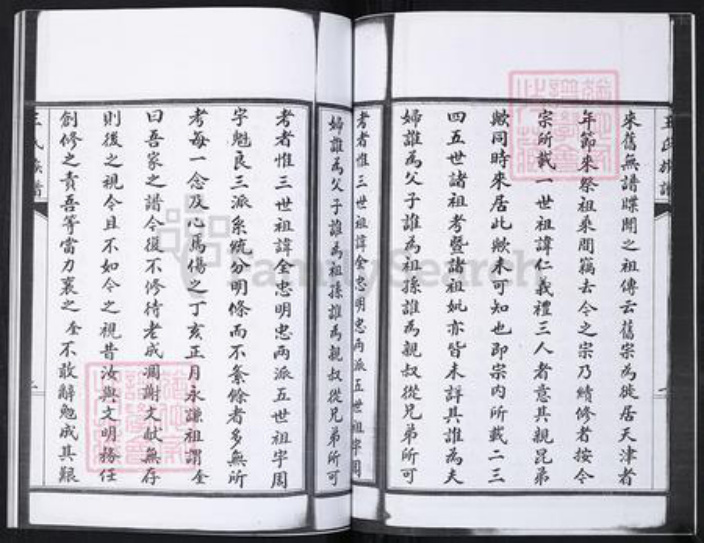 王氏族譜
來舊無譜牒聞之祖傳云舊宗為徙居天津者
年節來祭祖乘間竊去今之宗乃續修者按今
宗所載一世祖諱仁義禮三人者意其親兄弟
歟同時來居此歟未可知也即宗內所載二三
四五世諸祖考暨諸祖妣亦皆未詳其誰為夫
婦誰為父子誰為祖孫誰為親叔從兄弟所可
考者惟三世祖諱金忠明忠兩派五世祖宇周
婦誰為父子誰為祖孫誰為親叔從兄弟所可
考者惟三世祖諱金忠明忠兩派五世祖宇周
字魁良三派系統分明條而不紊餘者多無所
考每一念及心焉傷之丁亥正月永謙祖謂全
曰吾家之譜今復不修待老成凋謝文獻無存
則後之視今且不如今之視昔汝與文明務任
創修之責吾等當力襄之全不敢辭勉成其艱
王氏族譜
FamilySearch